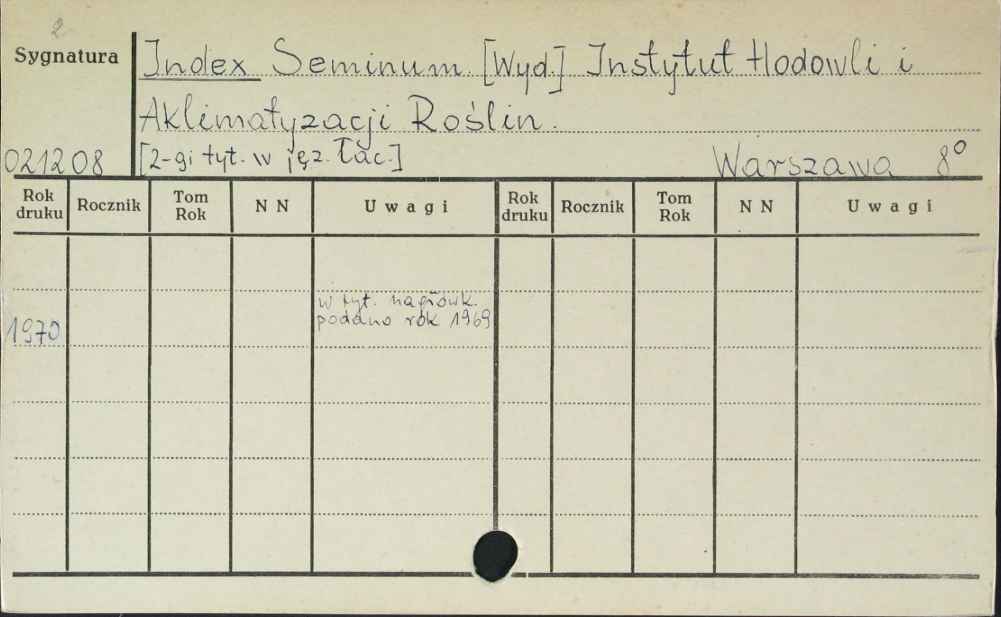 2
Sygnatura
Index Seminum [Wyd.] Instytut Hodowli i
Aklimatyzacji Roślin.
021208 [2-gi tyt. w jęz. łac.] Warszawa 8°
Rok druku Rocznik Tom Rok N N Uwagi Rok druku Rocznik Tom Rok N N Uwagi
w tyt. nagłówk.
1970 podano rok 1969